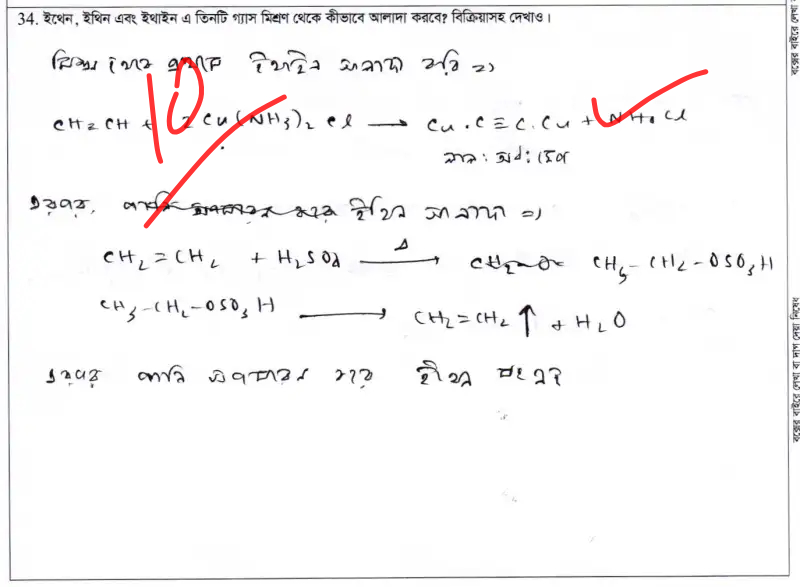 34. ইথেন, ইথিন এবং ইথাইন এ তিনটি গ্যাস মিশ্রণ থেকে কীভাবে আলাদা করবে? বিক্রিয়াসহ দেখাও।
মিশ্রণ থেকে প্রথমে ইথাইন আলাদা করি ⇒
10
CH≡CH + 2 Cu(NH3)2 Cl → Cu.C≡C.Cu + NH4Cl
লাল: অধ:ক্ষেপ
এরপর, ইথিন আলাদা ⇒
CH2=CH2 + H2SO4 Δ→ CH3-CH2-OSO3H
CH3-CH2-OSO3H → CH2=CH2↑ + H2O
এরপর পানি অপসারণ করে ইথেন
বক্সের বাইরে লেখা বা দাগ দেয়া নিষেধ
বক্সের বাইরে লেখা